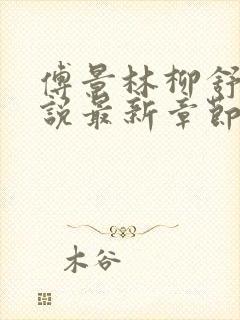 傅景林柳舒
說最新章節
木谷